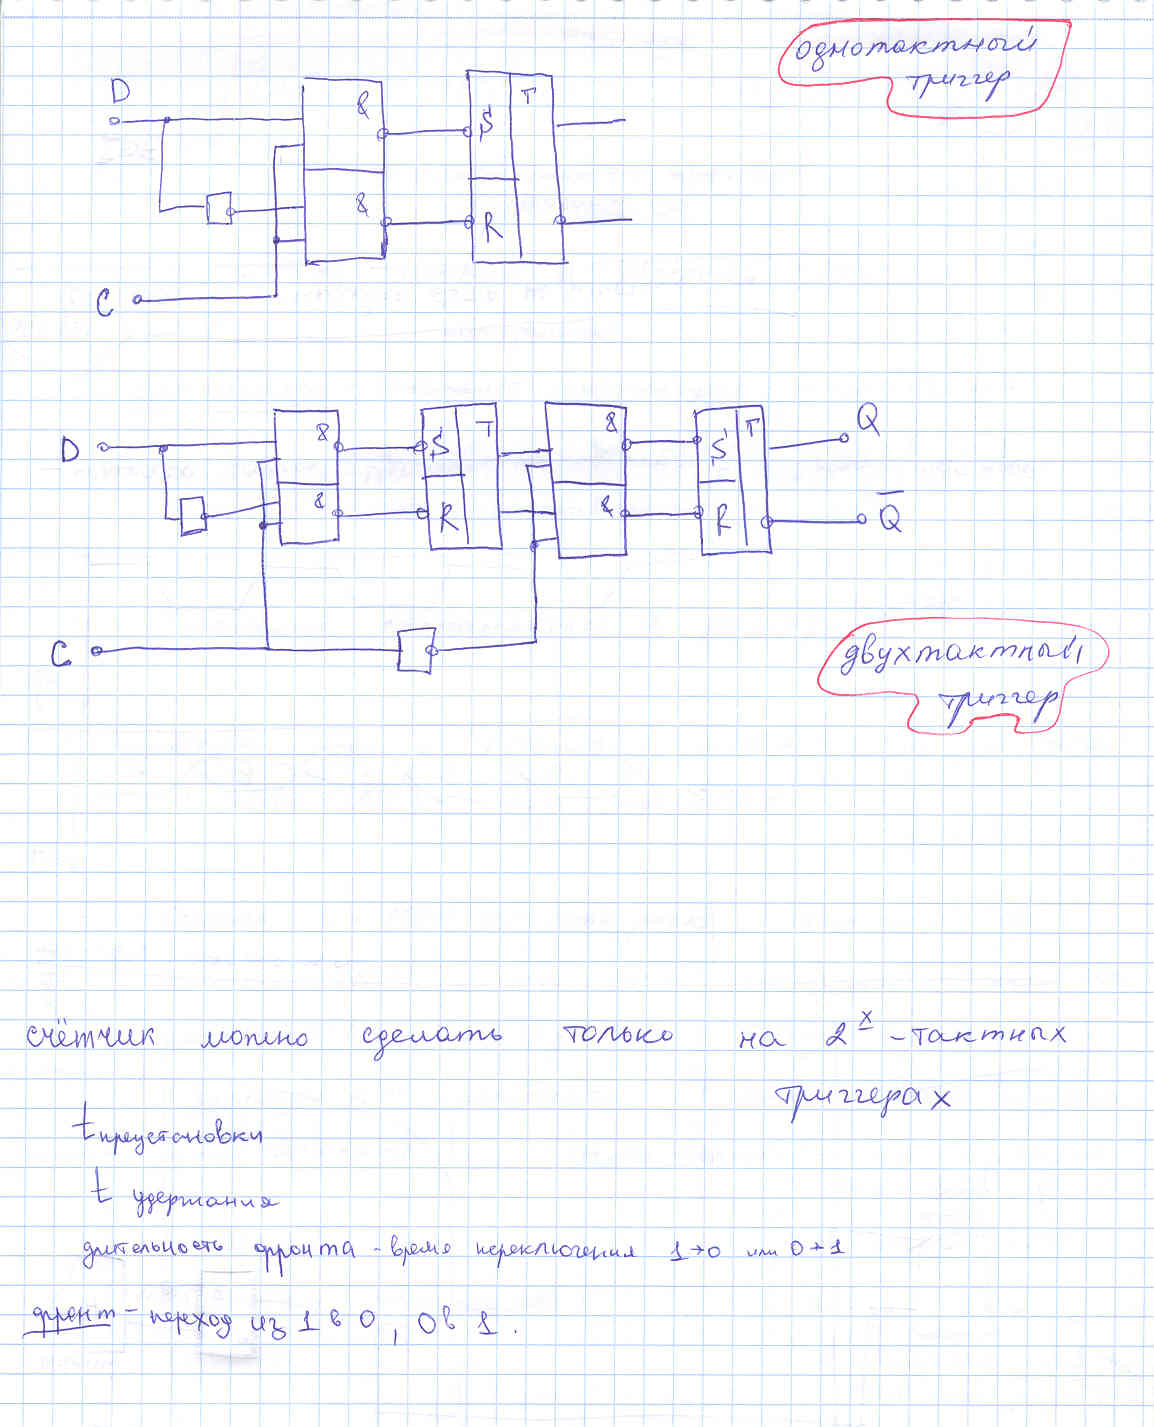 однотактный
триггер
D
&
S T
&
R
C
D
&
S T
&
S T
Q
&
R
&
R
Q̅
C
двухтактный
триггер
счётчик можно сделать только на 2х-тактных
триггерах
t преустановки
t удержания
длительность фронта - время переключения 1→0 или 0→1
фронт - переход из 1 в 0, 0 в 1.